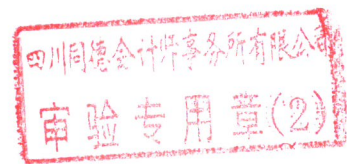 四川同德会计师事务所有限公司
审验专用章(2)